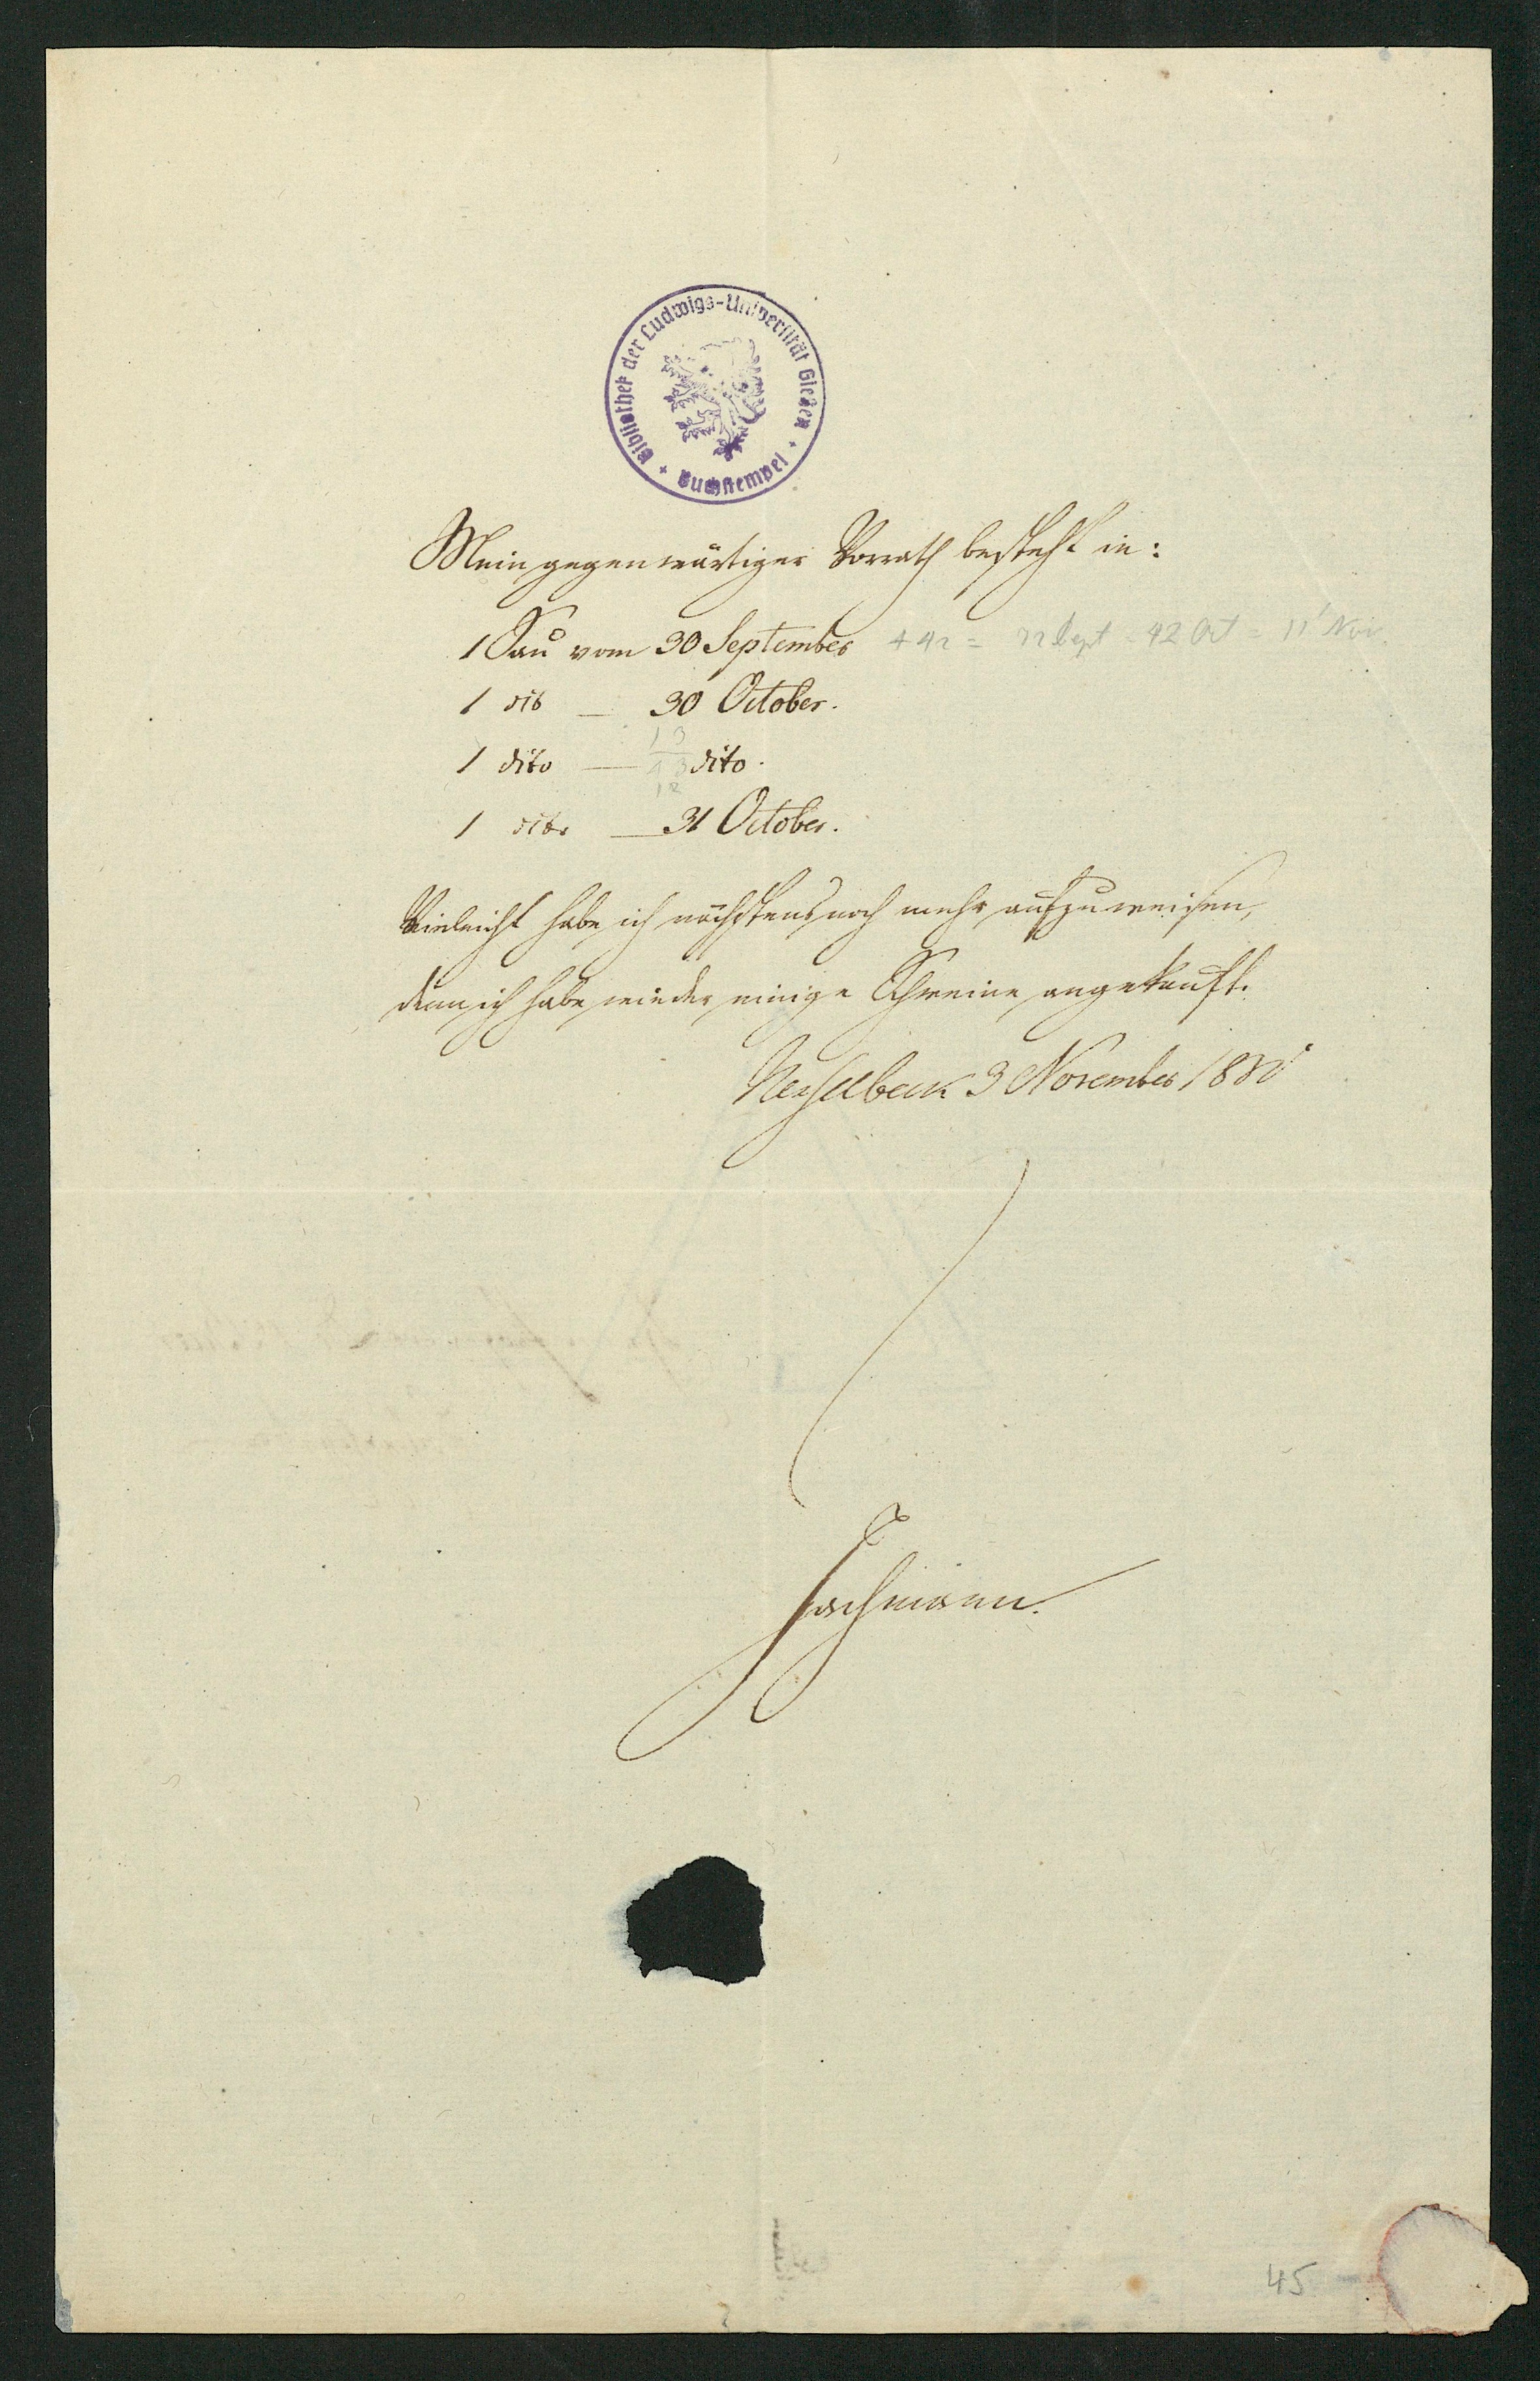 Bibliothek der Ludwigs-Universität Gießen
+ Buchstempel +
Mein gegenwärtiger Vorrath besteht in:
1 Sau vom 30 September + 42 = 72 Sept 42 Oct = 11 Nov.
1 dito — 30 October.
1 dito — 13 dito.
12
1 dito — 31 October.
Vieleicht habe ich nächstens noch mehr aufzuweisen,
denn ich habe wieder einige Schweine angekauft.
Nesselbeck 3 November
Jachmann.
45